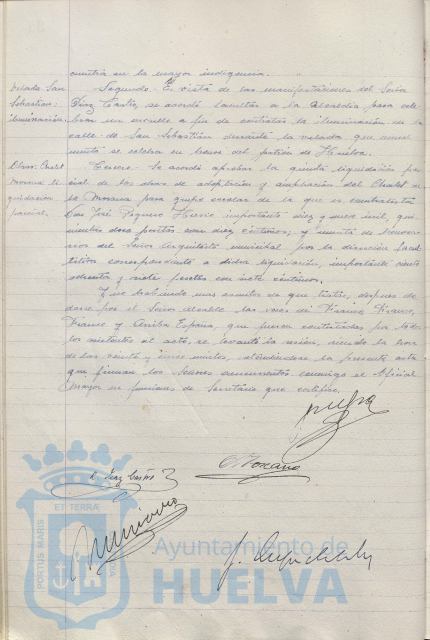 cuentra en la mayor indigencia.
Velada San
Sebastian:
iluminación.
Segundo.- En vista de las manifestaciones del Señor
Díaz Castro, se acordó facultar a la Alcaldía para cele-
brar un concurso a fin de contratar la iluminación en la
calle de San Sebastián durante la velada que anual-
mente se celebra en honor del patrón de Huelva.
Obras: Chalet
Moreana li-
quidación
parcial.
Tercero.- Se acordó aprobar la quinta liquidación par-
cial de las obras de adaptación y ampliación del Chalet de
la Moreana para grupo escolar de la que es contratista
Don José importante diez y nueve mil, qui-
nientas doce pesetas con diez céntimos; y minuta de honora-
rios del Señor Arquitecto municipal por la dirección facul-
tativa correspondiente a dicha liquidación, importante ciento
ochenta y siete pesetas con siete céntimos.
Y no habiendo mas asuntos de que tratar, despues de
darse por el Señor Alcalde las voces de Franco, Franco,
Franco y Arriba España, que fueron contestadas por todos
los asistentes al acto, se levantó la sesión, siendo la hora
de las veinte y minutos, extendiéndose la presente acta
que firman los Señores concurrentes conmigo el Oficial
Mayor en funciones de Secretario que certifico.
Diaz Castro
PORTUS MARIS
ET TERRAE
Ayuntamiento de
HUELVA